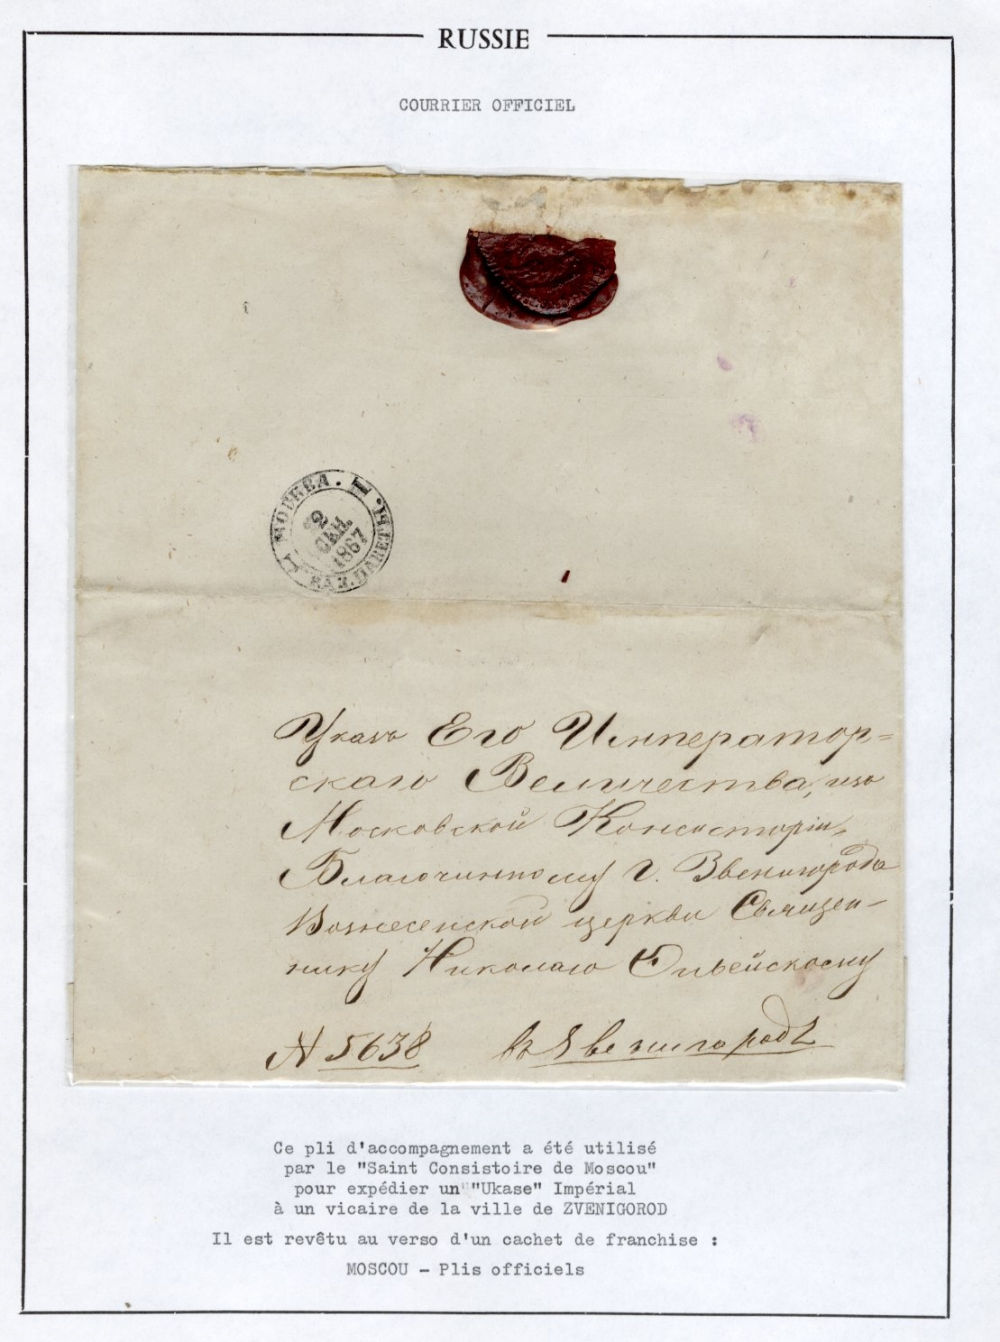 RUSSIE
COURRIER OFFICIEL
МОСКВА.
2
1867
КАЗ. ПАКЕТЫ.
Указъ Его Император=
скаго Величества, изъ
Московской Консисторіи,
Благочинному г. Звенигорода
Вознесенской церкви Священ-
нику Николаю
N 5638 въ Звенигородѣ
Ce pli d'accompagnement a été utilisé
par le "Saint Consistoire de Moscou"
pour expédier un "Ukase" Impérial
à un vicaire de la ville de ZVENIGOROD
Il est revêtu au verso d'un cachet de franchise :
MOSCOU - Plis officiels